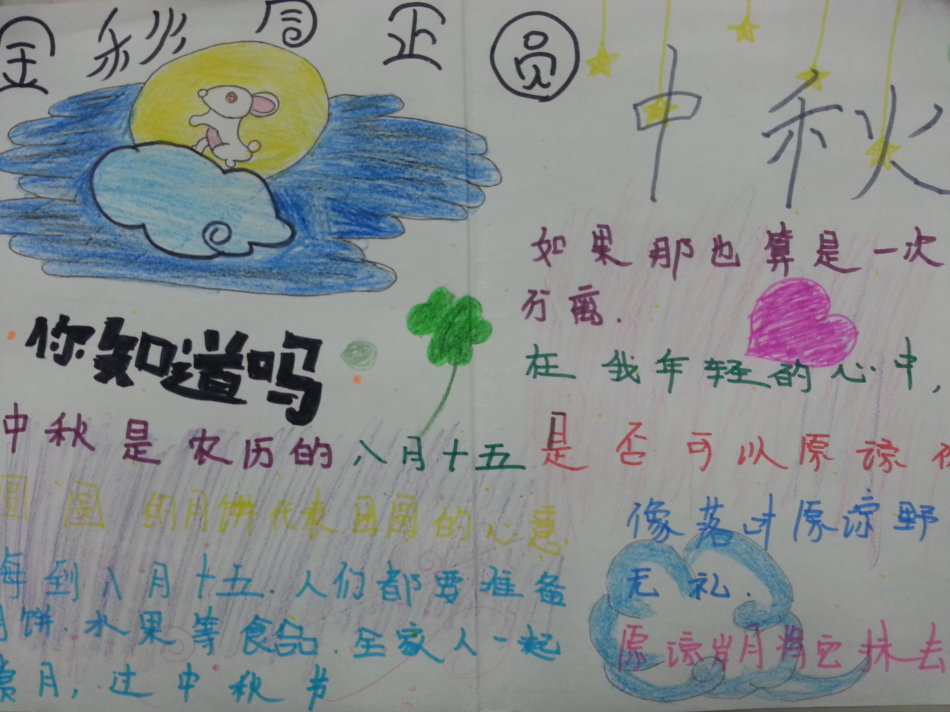 金秋月正圆
中秋
你知道吗
中秋是农历的八月十五
圆圆的月饼代表团圆的心意
每到八月十五.人们都要准备
月饼.水果等食品.全家人一起
赏月，过中秋节
如果那也算是一次
分离.
在我年轻的心中，
是否可以原谅你
像落叶原谅野
无礼.
原谅岁月将它抹去